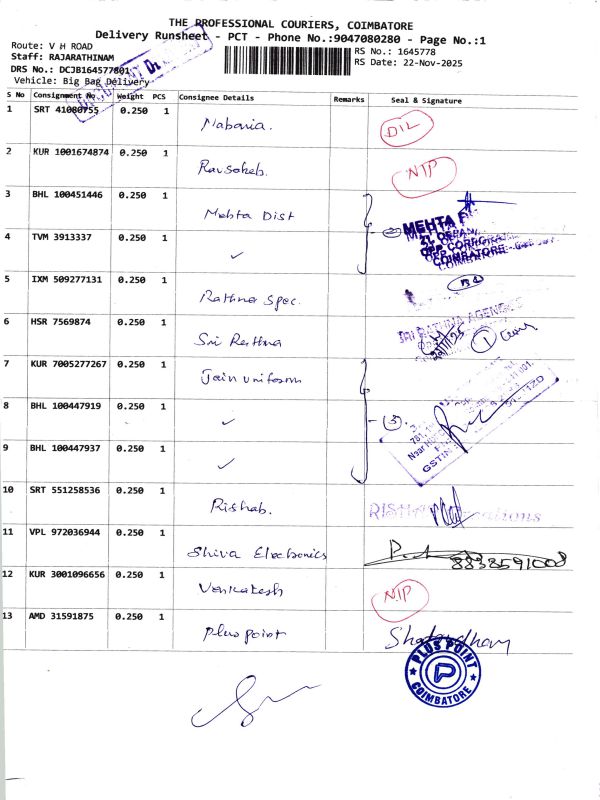 THE PROFESSIONAL COURIERS, COIMBATORE
Delivery Runsheet - PCT - Phone No.:9047080280 - Page No.:1
Route: V H ROAD
Staff: RAJARATHINAM
DRS No.: DCJB164577801
Vehicle: Big Bag Delivery
RS No.: 1645778
RS Date: 22-Nov-2025
S No Consignment No. Weight PCS Consignee Details Remarks Seal & Signature
1 SRT 41080755 0.250 1 DIL
2 KUR 1001674874 0.250 1 NIP
3 BHL 100451446 0.250 1 Mehta Dist MEHTA
4 TVM 3913337 0.250 1 ✓ COIMBATORE
5 IXM 509277131 0.250 1 Rathna Spec.
6 HSR 7569874 0.250 1 Sri Rathna SRI RATHNA AGENCIES
7 KUR 7005277267 0.250 1 Jain uniform
8 BHL 100447919 0.250 1 ✓ (3) GSTIN
9 BHL 100447937 0.250 1 ✓
10 SRT 551258536 0.250 1 Rishab.
11 VPL 972036944 0.250 1 Shiva Electronics 8838591008
12 KUR 3001096656 0.250 1 Venkatesh NIP
13 AMD 31591875 0.250 1 Plus point
PLUS POINT
COIMBATORE